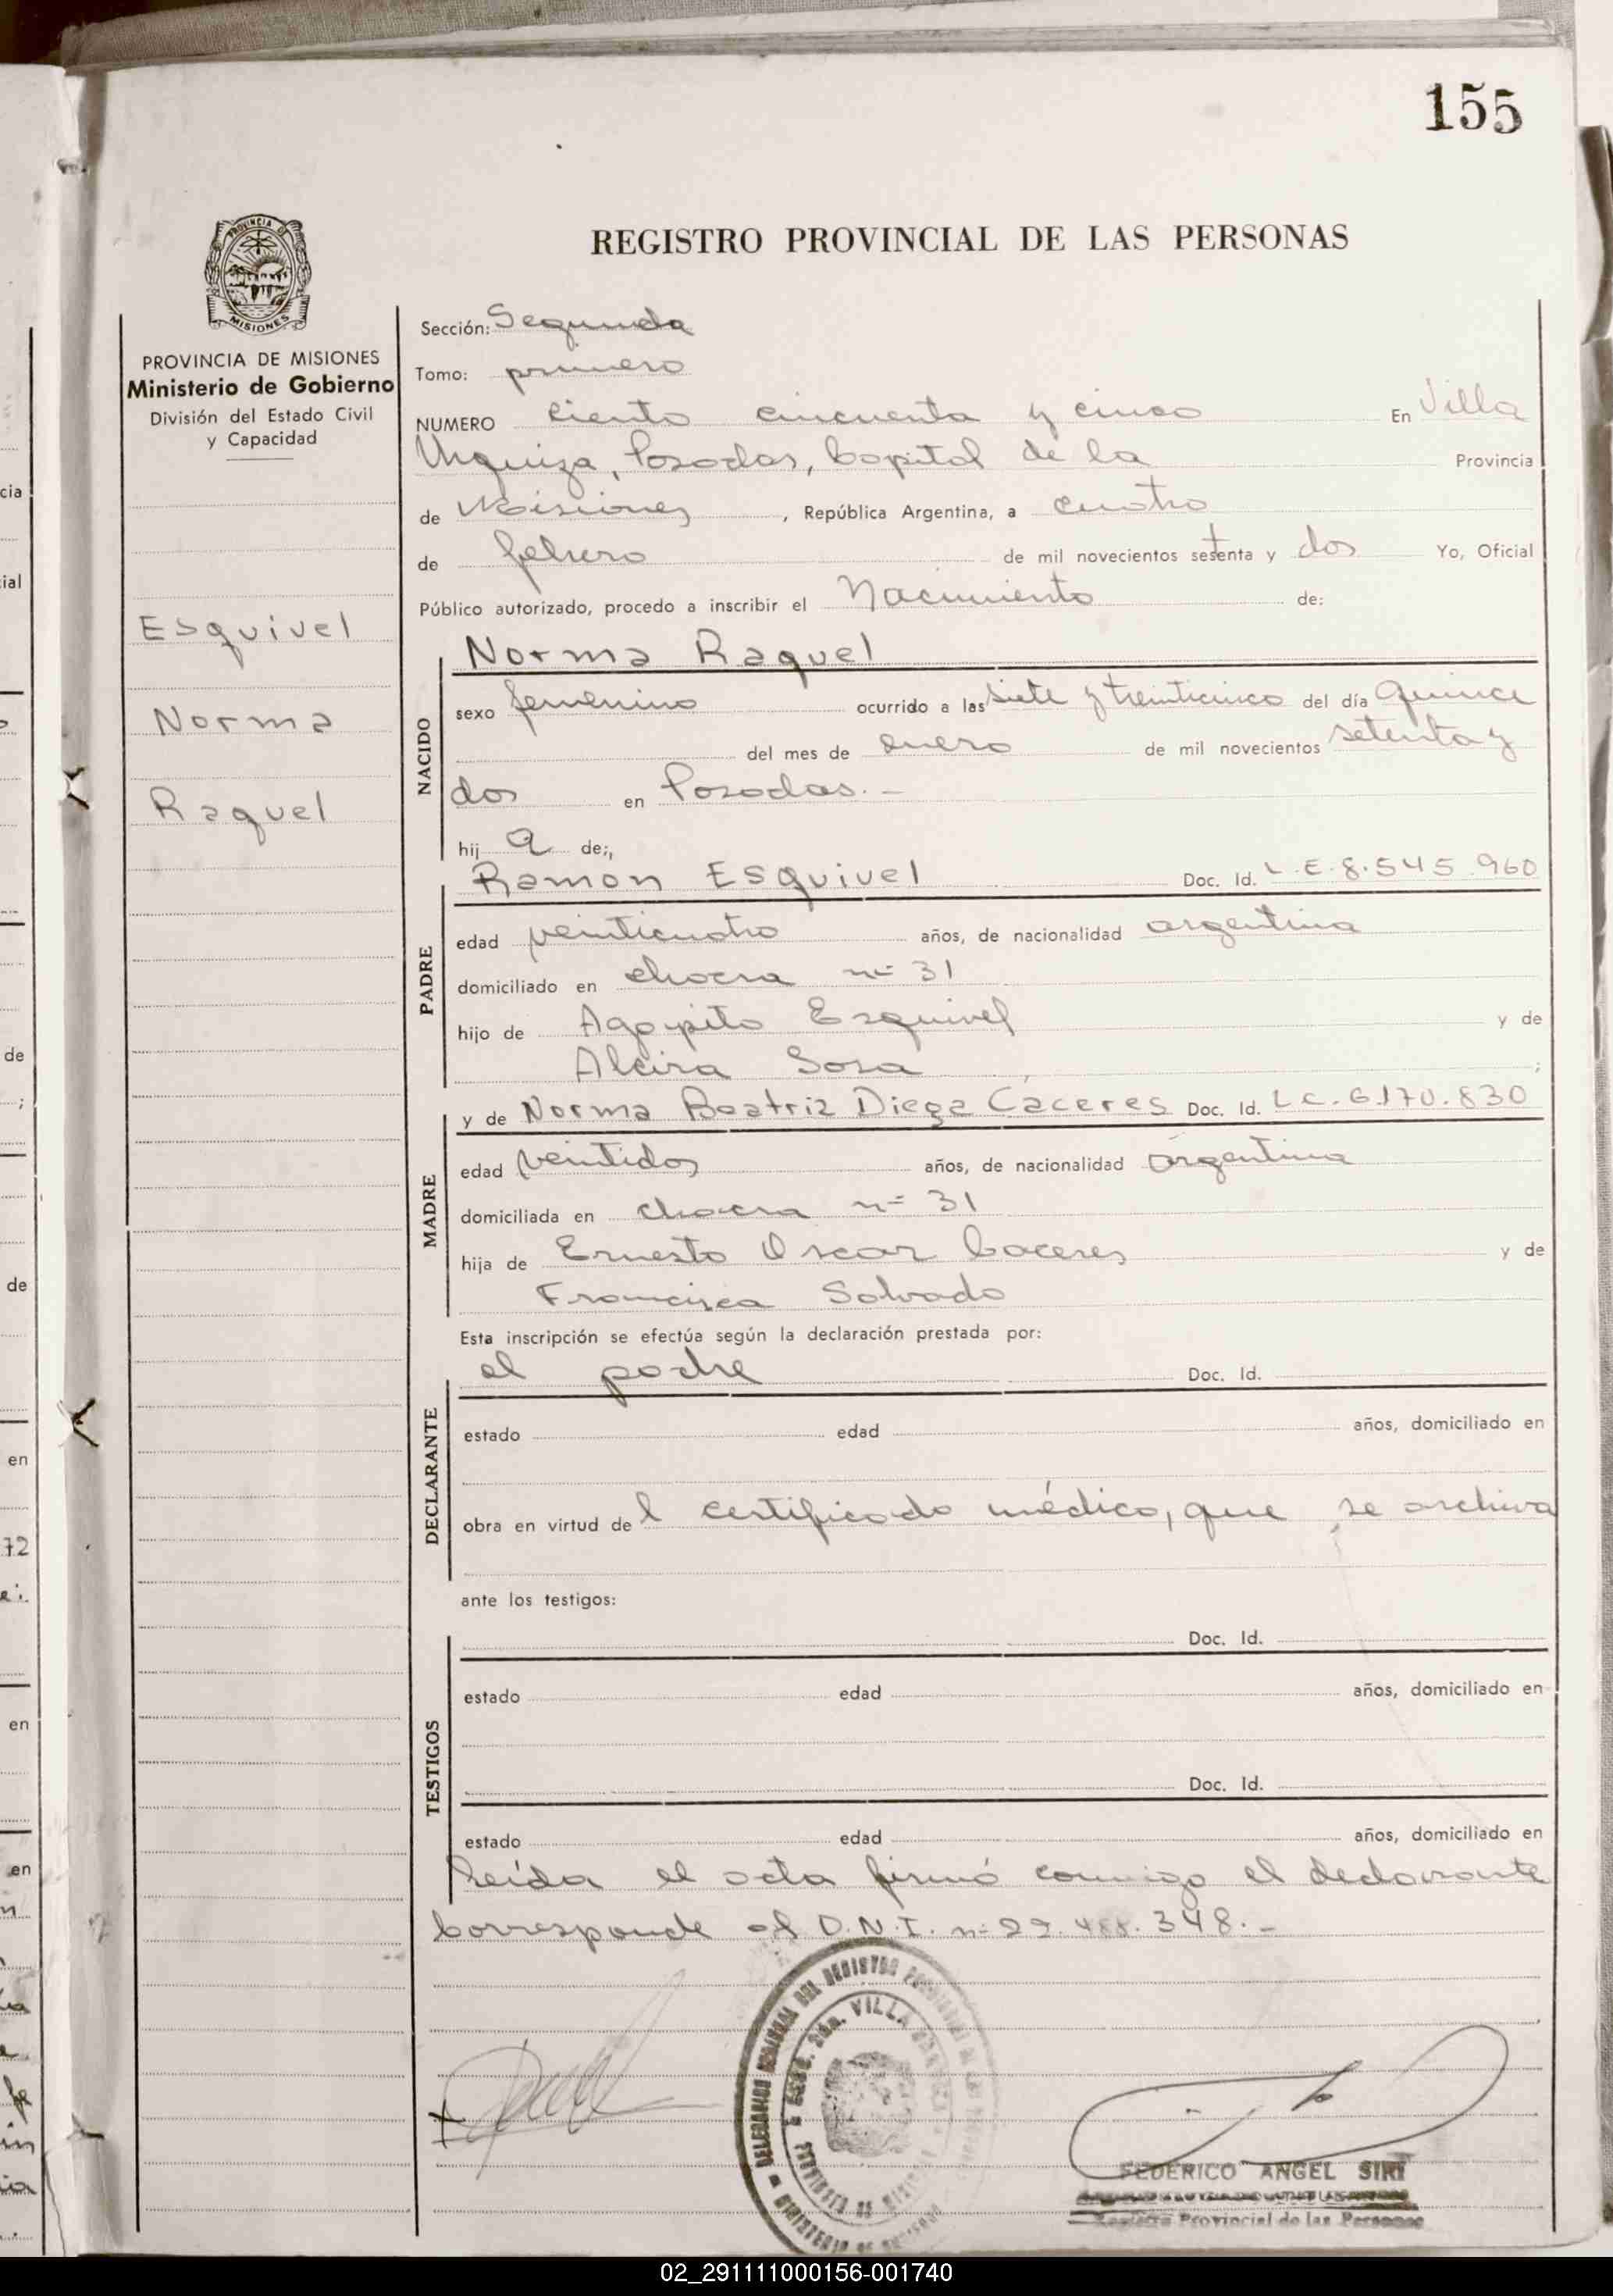 155
REGISTRO PROVINCIAL DE LAS PERSONAS
PROVINCIA DE
MISIONES
PROVINCIA DE MISIONES
Ministerio de Gobierno
División del Estado Civil
y Capacidad
Esquivel
Norma
Raquel
Sección: Segunda
Tomo: primero
NUMERO ciento cincuenta y cinco En Villa
Urquiza, Posadas, Capital de la Provincia
de Misiones, República Argentina, a cuatro
de febrero de mil novecientos setenta y dos Yo, Oficial
Público autorizado, procedo a inscribir el Nacimiento de:
NACIDO
Norma Raquel
sexo femenino ocurrido a las siete y treinticinco del día quince
del mes de enero de mil novecientos setenta y
dos en Posadas.-
hij a de:,
PADRE
Ramon Esquivel Doc. Id. L.E.8.545.960
edad veinticuatro años, de nacionalidad argentina
domiciliado en chacra nº 31
hijo de Agapito Esquivel y de
Alcira Sosa ;
MADRE
y de Norma Beatriz Diega Caceres Doc. Id. L.C.6.170.830
edad veintidos años, de nacionalidad argentina
domiciliada en chacra nº 31
hija de Ernesto Oscar Caceres y de
Francisca Salvado
Esta inscripción se efectúa según la declaración prestada por:
DECLARANTE
el padre Doc. Id.
estado edad años, domiciliado en
obra en virtud del certificado médico, que se archiva
ante los testigos:
TESTIGOS
Doc. Id.
estado edad años, domiciliado en
Doc. Id.
estado edad años, domiciliado en
Leída el acta firmó conmigo el declarante
Corresponde al D.N.I. nº 22.488.348.-
FEDERICO ANGEL SIRI
Registro Provincial de las Personas
02_291111000156-001740